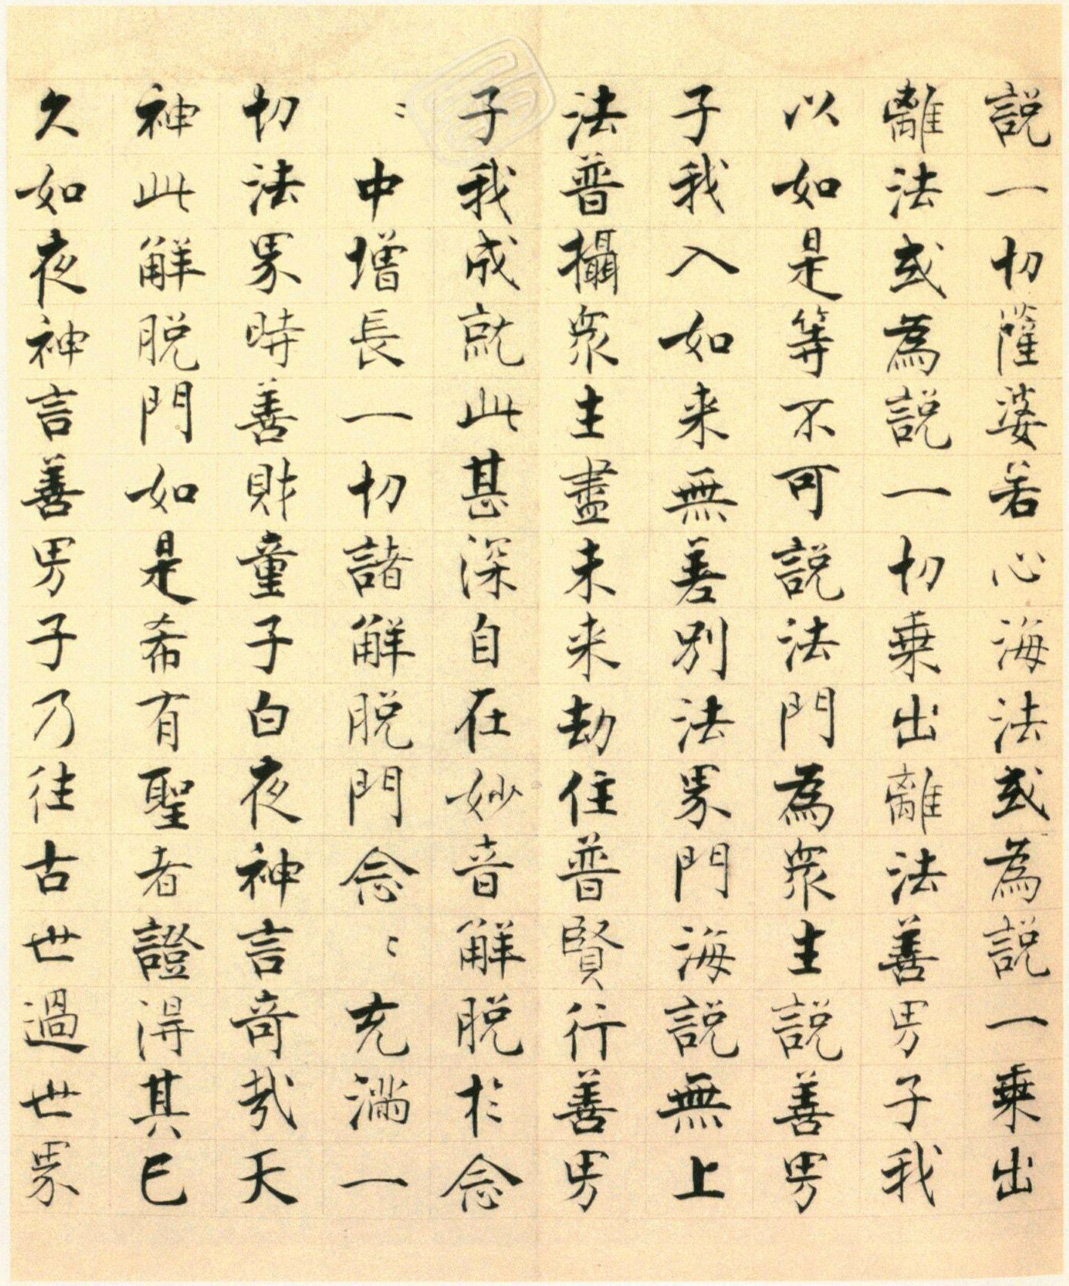 説一切薩婆若心海法或為説一乗出
離法或為説一切乗出離法善男子我
以如是等不可説法門為衆生説善男
子我入如来無差別法界門海説無上
法普攝衆生盡未来劫住普賢行善男
子我成就此甚深自在妙音解脱於念
〻中增長一切諸解脱門念〻充滿一
切法界時善財童子白夜神言奇哉天
神此解脱門如是希有聖者證得其已
久如夜神言善男子乃往古世過世界